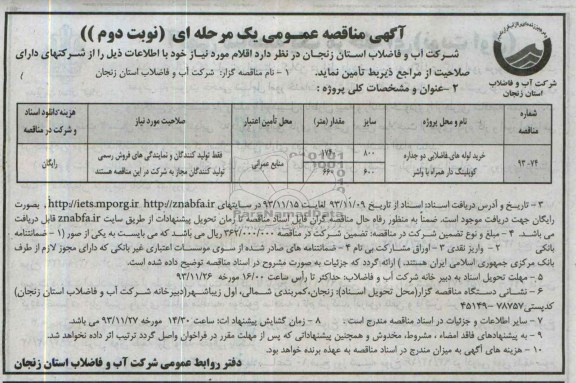 آگهی مناقصه عمومی یک مرحله ای (نوبت دوم))
شرکت آب و فاضلاب استان زنجان در نظر دارد اقلام مورد نیاز خود با اطلاعات ذیل را از شرکتهای دارای
صلاحیت از مراجع ذیربط تأمین نماید. ۱ - نام مناقصه گزار: شرکت آب و فاضلاب استان زنجان
۲ -عنوان و مشخصات کلی پروژه :
شرکت آب و فاضلاب
استان زنجان
شماره مناقصه | نام و محل پروژه | سایز | مقدار (متر) | محل تأمین اعتبار | صلاحیت مورد نیاز | هزینه دانلود اسناد و شرکت در مناقصه
۹۳-۷۴ | خرید لوله های فاضلابی دو جداره کوپلینگ دار همراه با واشر | ۸۰۰ | ۱۷۴ | منابع عمرانی | فقط تولید کنندگان و نمایندگی های فروش رسمی تولید کنندگان مجاز به شرکت در این مناقصه هستند | رایگان
۶۰۰ | ۶۶۰
۳ - تاریخ و آدرس دریافت اسناد: اسناد از تاریخ ۹۳/۱۱/۰۹ لغایت ۹۳/۱۱/۱۵ در سایتهای http://iets.mporg.ir http://znabfa.ir، بصورت
رایگان جهت دریافت موجود است. ضمناً به منظور رفاه حال مناقصه گران فایل اسناد مناقصه تا زمان تحویل پیشنهادات از طریق سایت znabfa.ir قابل دریافت
می باشد. ۴ - مبلغ و نوع تضمین شرکت در مناقصه: تضمین شرکت در مناقصه ۳۶۲/۰۰۰/۰۰۰ ریال می باشد که می بایست به یکی از صور (۱ - ضمانتنامه
بانکی ۲ - واریز نقدی ۳ - اوراق مشارکت بی نام ۴ - ضمانتنامه های صادر شده از سوی موسسات اعتباری غیر بانکی که دارای مجوز لازم از طرف
بانک مرکزی جمهوری اسلامی ایران هستند.) ارائه گردد که جزئیات به صورت مشروح در اسناد مناقصه توضیح داده شده است.
۵ - مهلت تحویل اسناد به دبیر خانه شرکت آب و فاضلاب: حداکثر تا رأس ساعت ۱۶/۰۰ مورخه ۹۳/۱۱/۲۶
۶ - نشانی دستگاه مناقصه گزار(محل تحویل اسناد): زنجان،کمربندی شمالی، اول زیباشهر(دبیرخانه شرکت آب و فاضلاب استان زنجان)
کدپستی۷۸۷۵۷-۴۵۱۴۹
۷ - سایر اطلاعات و جزئیات در اسناد مناقصه مندرج است. ۸ - زمان گشایش پیشنهاد ات: ساعت ۱۴/۳۰ مورخ ۹۳/۱۱/۲۷ می باشد.
۹ - به پیشنهادهای فاقد امضاء ، مشروط، مخدوش و همچنین پیشنهاداتی که پس از مهلت مقرر در فراخوان واصل گردد ترتیب اثر داده نخواهد شد.
۱۰ - هزینه های آگهی به میزان مندرج در اسناد مناقصه به عهده برنده خواهد بود.
دفتر روابط عمومی شرکت آب و فاضلاب استان زنجان